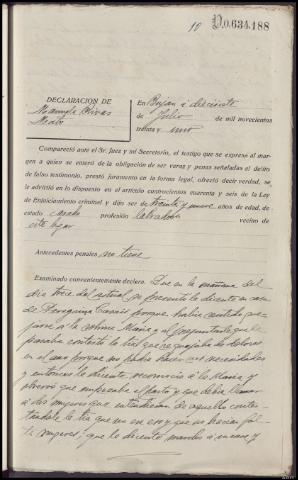 10 D.0.634.188
DECLARACIÓN DE
Manuela Olivas
En a diecisiete
de Julio de mil novecientos
treinta y uno
Compareció ante el Sr. Juez y mi Secretario, el testigo que se expresa al mar-
gen a quien se enteró de la obligación de ser veraz y penas señaladas el delito
de falso testimonio, prestó juramento en la forma legal, ofreció decir verdad, se
le advirtió en lo dispuesto en el artículo cuatrocientos cuarenta y seis de la Ley
de Enjuiciamiento criminal y dijo ser de treinta y nueve años de edad, de
estado casada profesión labradora vecino de
este lugar
Antecedentes penales no tiene
Examinado convenientemente declara: Que en la mañana del
día trece del actual se presentó la dicente en casa
de porque había sentido que
a la sobrina María y al preguntarle que le
pasaba contestó la tía que se quejaba de dolores
en el ano porque no podía hacer sus necesidades
y entonces la dicente reconoció a la María y
observó que empezaba el parto y que debía llamar
a dos mujeres que entendieran de aquello contes-
tándole la tía que no era eso y que no hacían fal-
ta mujeres; que la dicente marchó a su casa y